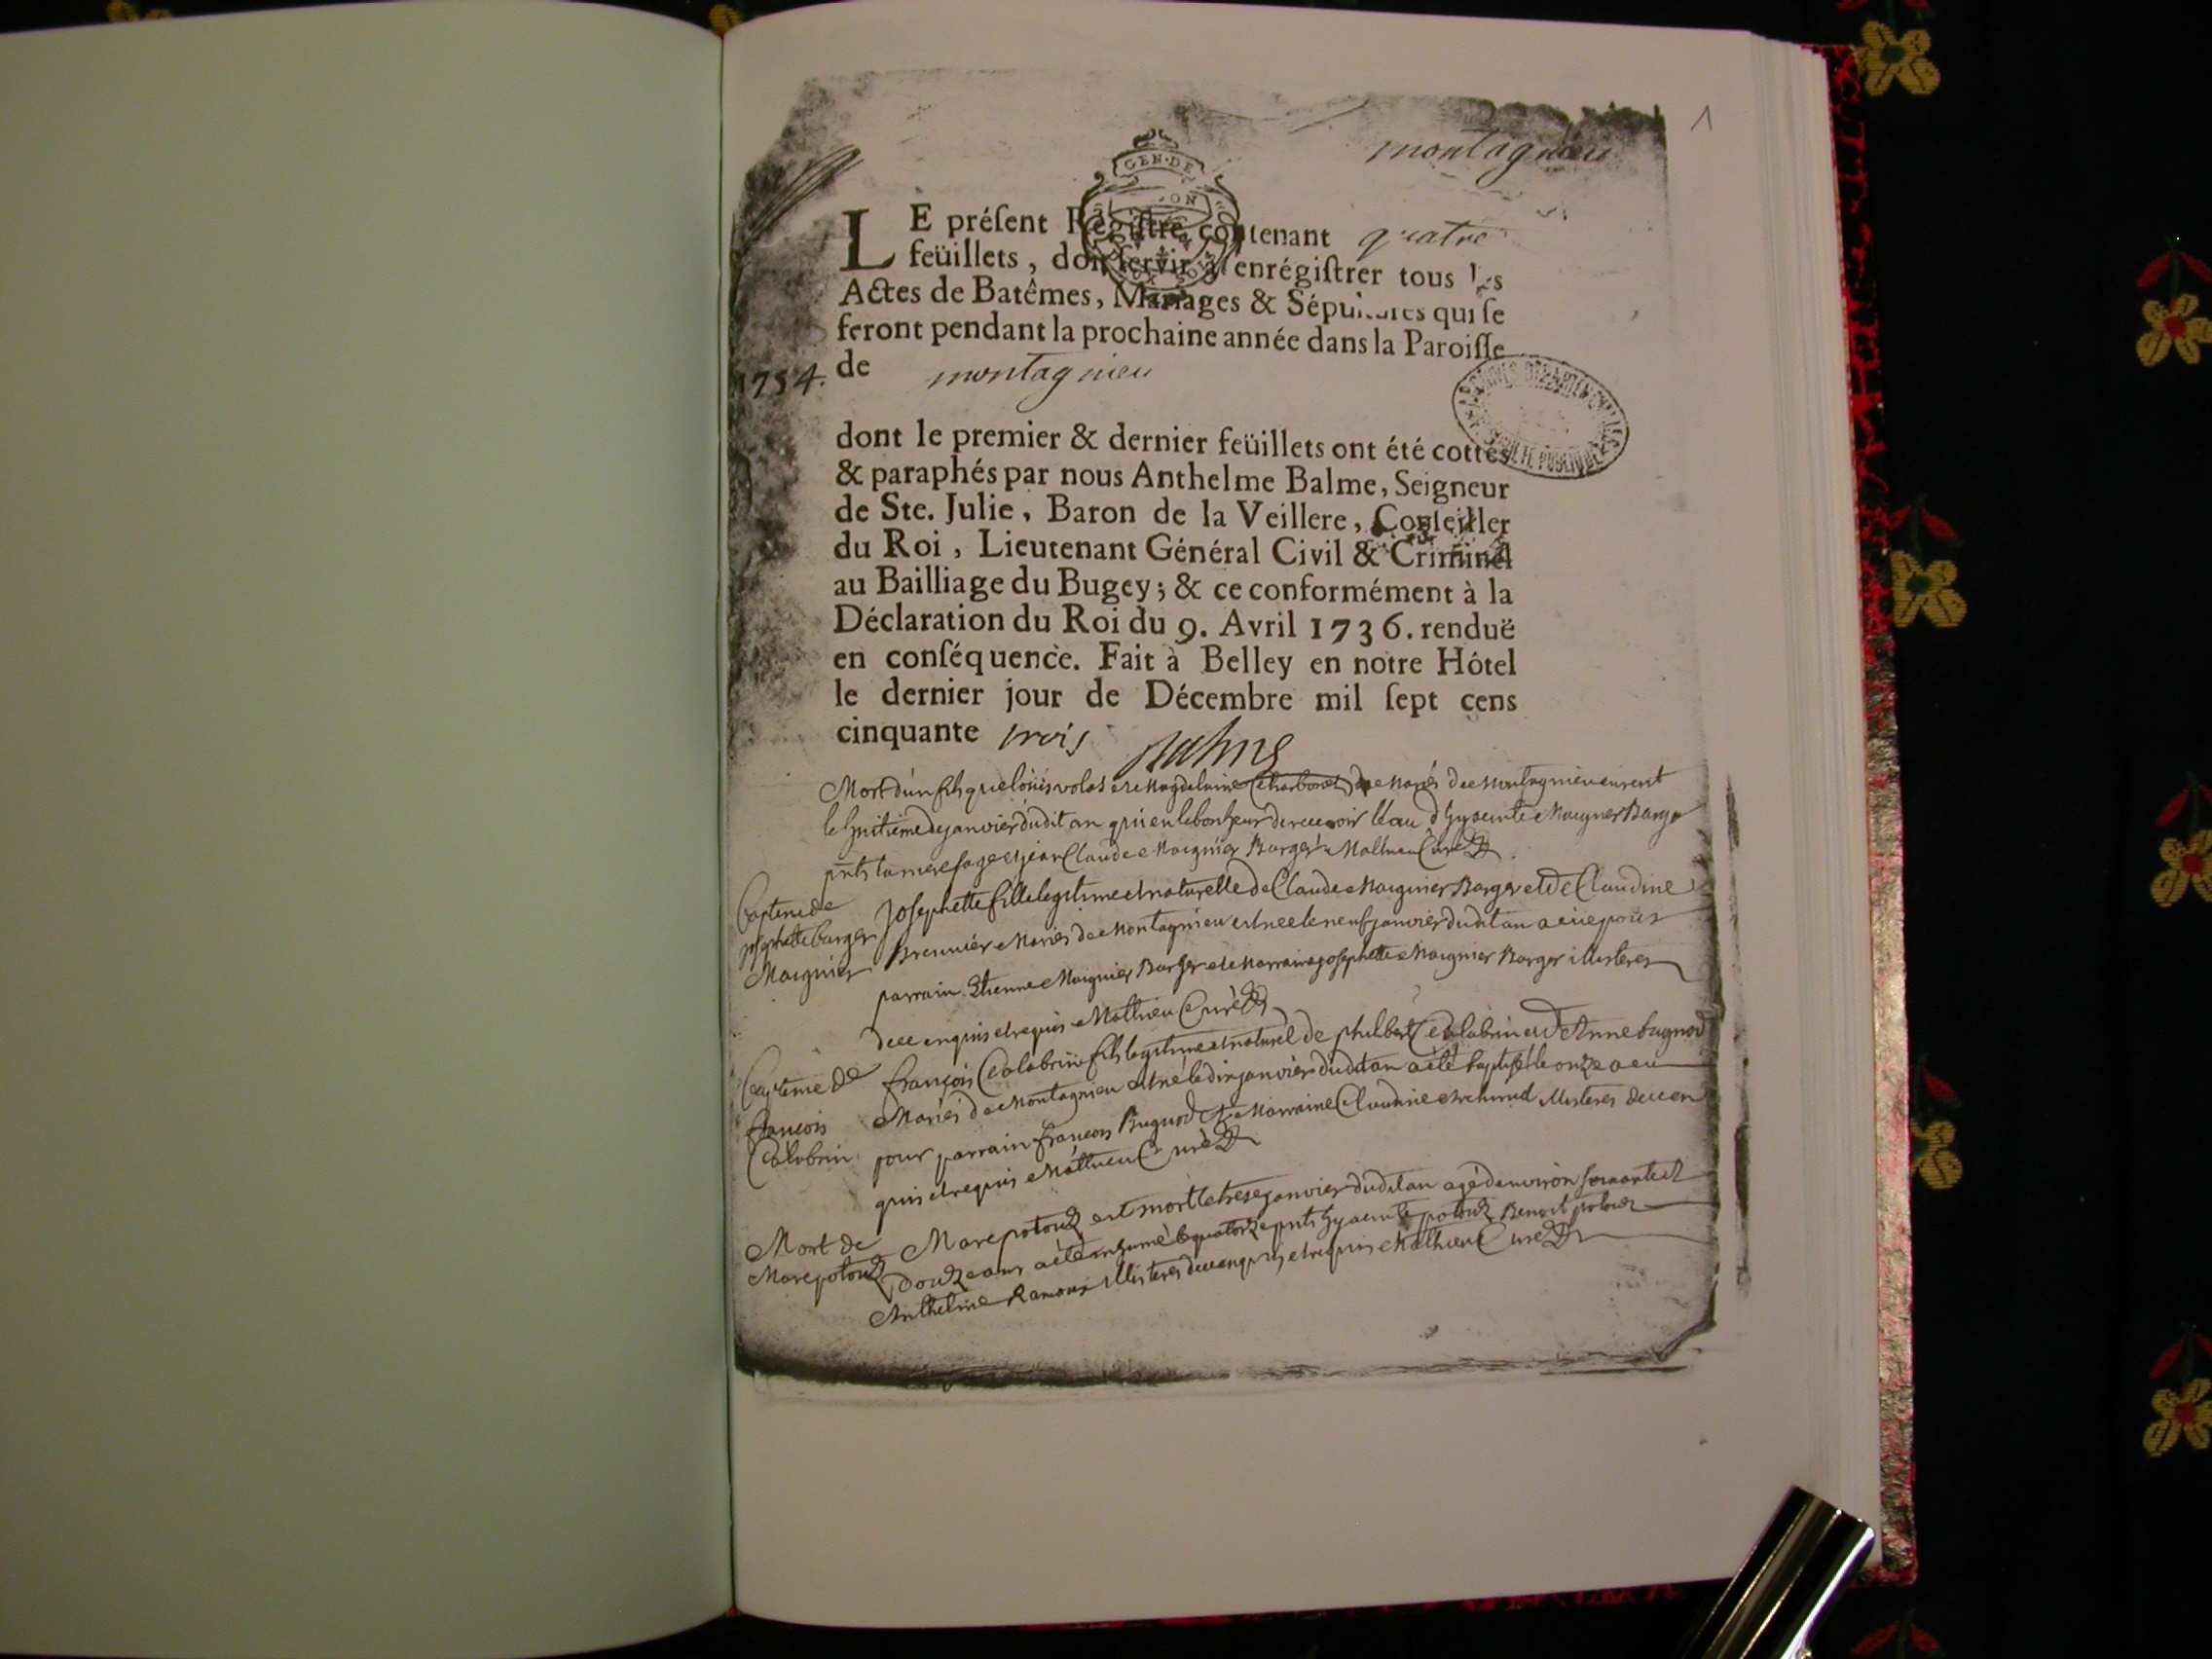 1
montagnieu
GEN·DE
ON
LE préſent Régiſtre contenant quatre
feüillets, doit ſervir à enrégiſtrer tous les
Actes de Batêmes, Mariages & Sépultures qui ſe
feront pendant la prochaine année dans la Paroiſſe
1754. de montagnieu
dont le premier & dernier feüillets ont été cottés
& paraphés par nous Anthelme Balme, Seigneur
de Ste. Julie, Baron de la Veillere, Conſeiller
du Roi, Lieutenant Général Civil & Criminel
au Bailliage du Bugey; & ce conformément à la
Déclaration du Roi du 9. Avril 1736. renduë
en conſéquence. Fait à Belley en notre Hôtel
le dernier jour de Décembre mil ſept cens
cinquante trois Balme
Mort d'un fils que loüis volat et Magdelaine Charbonet Mariés de Montagnieu eurent
le huitieme de janvier dudit an qui eu le bonheur de recevoir l'eau d'hyacinte Maignier Barger
pnts la mere sage et jean Claude Maignier Barger Mathieu Curé
Bapteme de
josephette barger
Maignier
josephette fille legitime et naturelle de Claude Maignier Barger et de Claudine
Brennier Mariés de Montagnieu est nee le neuf janvier dudit an a eüe pour
parrain Etienne Maignier Barger et Marraine josephette Maignier Barger illiteres
de ce enquis et requis Mathieu Curé
Bapteme de
françois
Calabrin
françois Calabrin fils legitime et naturel de philbert Calabrin et d'Anne bugnod
Mariés de Montagnieu est né le dix janvier dudit an a été baptisé le onze a eu
pour parrain françois Bugnod et Marraine Claudine illiteres de ce en
quis et requis Mathieu Curé
Mort de
Marc potoud
Marc potoud est mort le treze janvier dudit an agé d'environ soixante et
douze ans a été inhumé le quatorze pnts hyacinte potoud, Benoit potoud
Anthelme Ramoux illiteres de ce enquis et requis Mathieu Curé